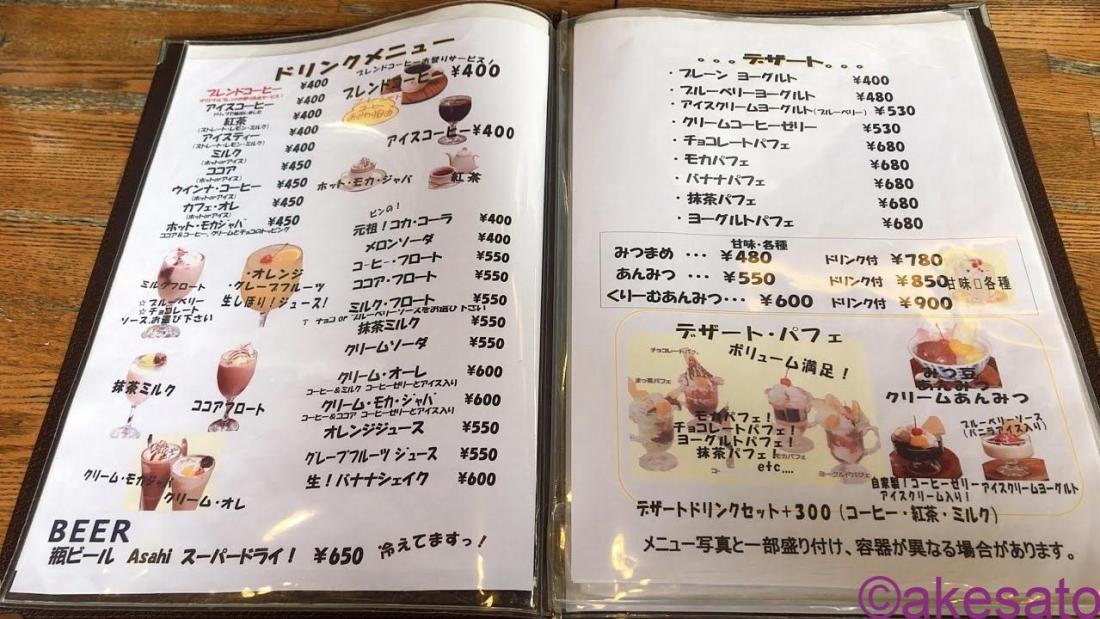 ドリンクメニュー
ブレンドコーヒーお替りサービス!
ブレンドコーヒー ¥400
ブレンドコーヒー ¥400
アイスコーヒー ¥400
紅茶 ¥400
(ストレート・レモン・ミルク)
アイスティー ¥400
(ストレート・レモン・ミルク)
ミルク ¥400
(ホットorアイス)
ココア ¥450
(ホットorアイス)
ウインナ・コーヒー ¥450
(ホットorアイス)
カフェ・オレ ¥450
(ホットorアイス)
ホット・モカジャバ ¥450
ココア&コーヒー、クリームとチョコのトッピング
アイスコーヒー ¥400
ホット・モカ・ジャバ
紅茶
ビンの!
元祖!コカ・コーラ ¥400
メロンソーダ ¥400
コーヒー・フロート ¥550
ココア・フロート ¥550
ミルク・フロート ¥550
チョコ or ブルーベリーソースをお選び下さい
抹茶ミルク ¥550
クリームソーダ ¥550
クリーム・オーレ ¥600
コーヒー&ミルク コーヒーゼリーとアイス入り
クリーム・モカ・ジャバ ¥600
コーヒー&ココア コーヒーゼリーとアイス入り
オレンジジュース ¥550
グレープフルーツ ジュース ¥550
生!バナナシェイク ¥600
ミルクフロート
☆ ブルーベリー
☆ チョコレート
ソース、お選び下さい
・オレンジ
・グレープフルーツ
生しぼり!ジュース!
抹茶ミルク
ココアフロート
クリーム・モカジャバ
クリーム・オレ
BEER
瓶ビール Asahi スーパードライ! ¥650 冷えてますっ!
。。。デザート。。。
・プレーン ヨーグルト ¥400
・ブルーベリーヨーグルト ¥480
・アイスクリームヨーグルト(ブルーベリー) ¥530
・クリームコーヒーゼリー ¥530
・チョコレートパフェ ¥680
・モカパフェ ¥680
・バナナパフェ ¥680
・抹茶パフェ ¥680
・ヨーグルトパフェ ¥680
甘味・各種
みつまめ ・・・ ¥480 ドリンク付 ¥780
あんみつ ・・・ ¥550 ドリンク付 ¥850
くりーむあんみつ・・・ ¥600 ドリンク付 ¥900
甘味 各種
デザート・パフェ
ボリューム満足!
チョコレートパフェ
まっ茶パフェ
モカパフェ!
チョコレートパフェ!
ヨーグルトパフェ!
抹茶パフェ!
etc....
モカパフェ
ヨーグルトパフェ
みつ豆
あんみつ
クリームあんみつ
ブルーベリーソース
(バニラアイス入り)
自家製!コーヒーゼリー
アイスクリーム入り!
アイスクリームヨーグルト
デザートドリンクセット+300(コーヒー・紅茶・ミルク)
メニュー写真と一部盛り付け、容器が異なる場合があります。
©akesato